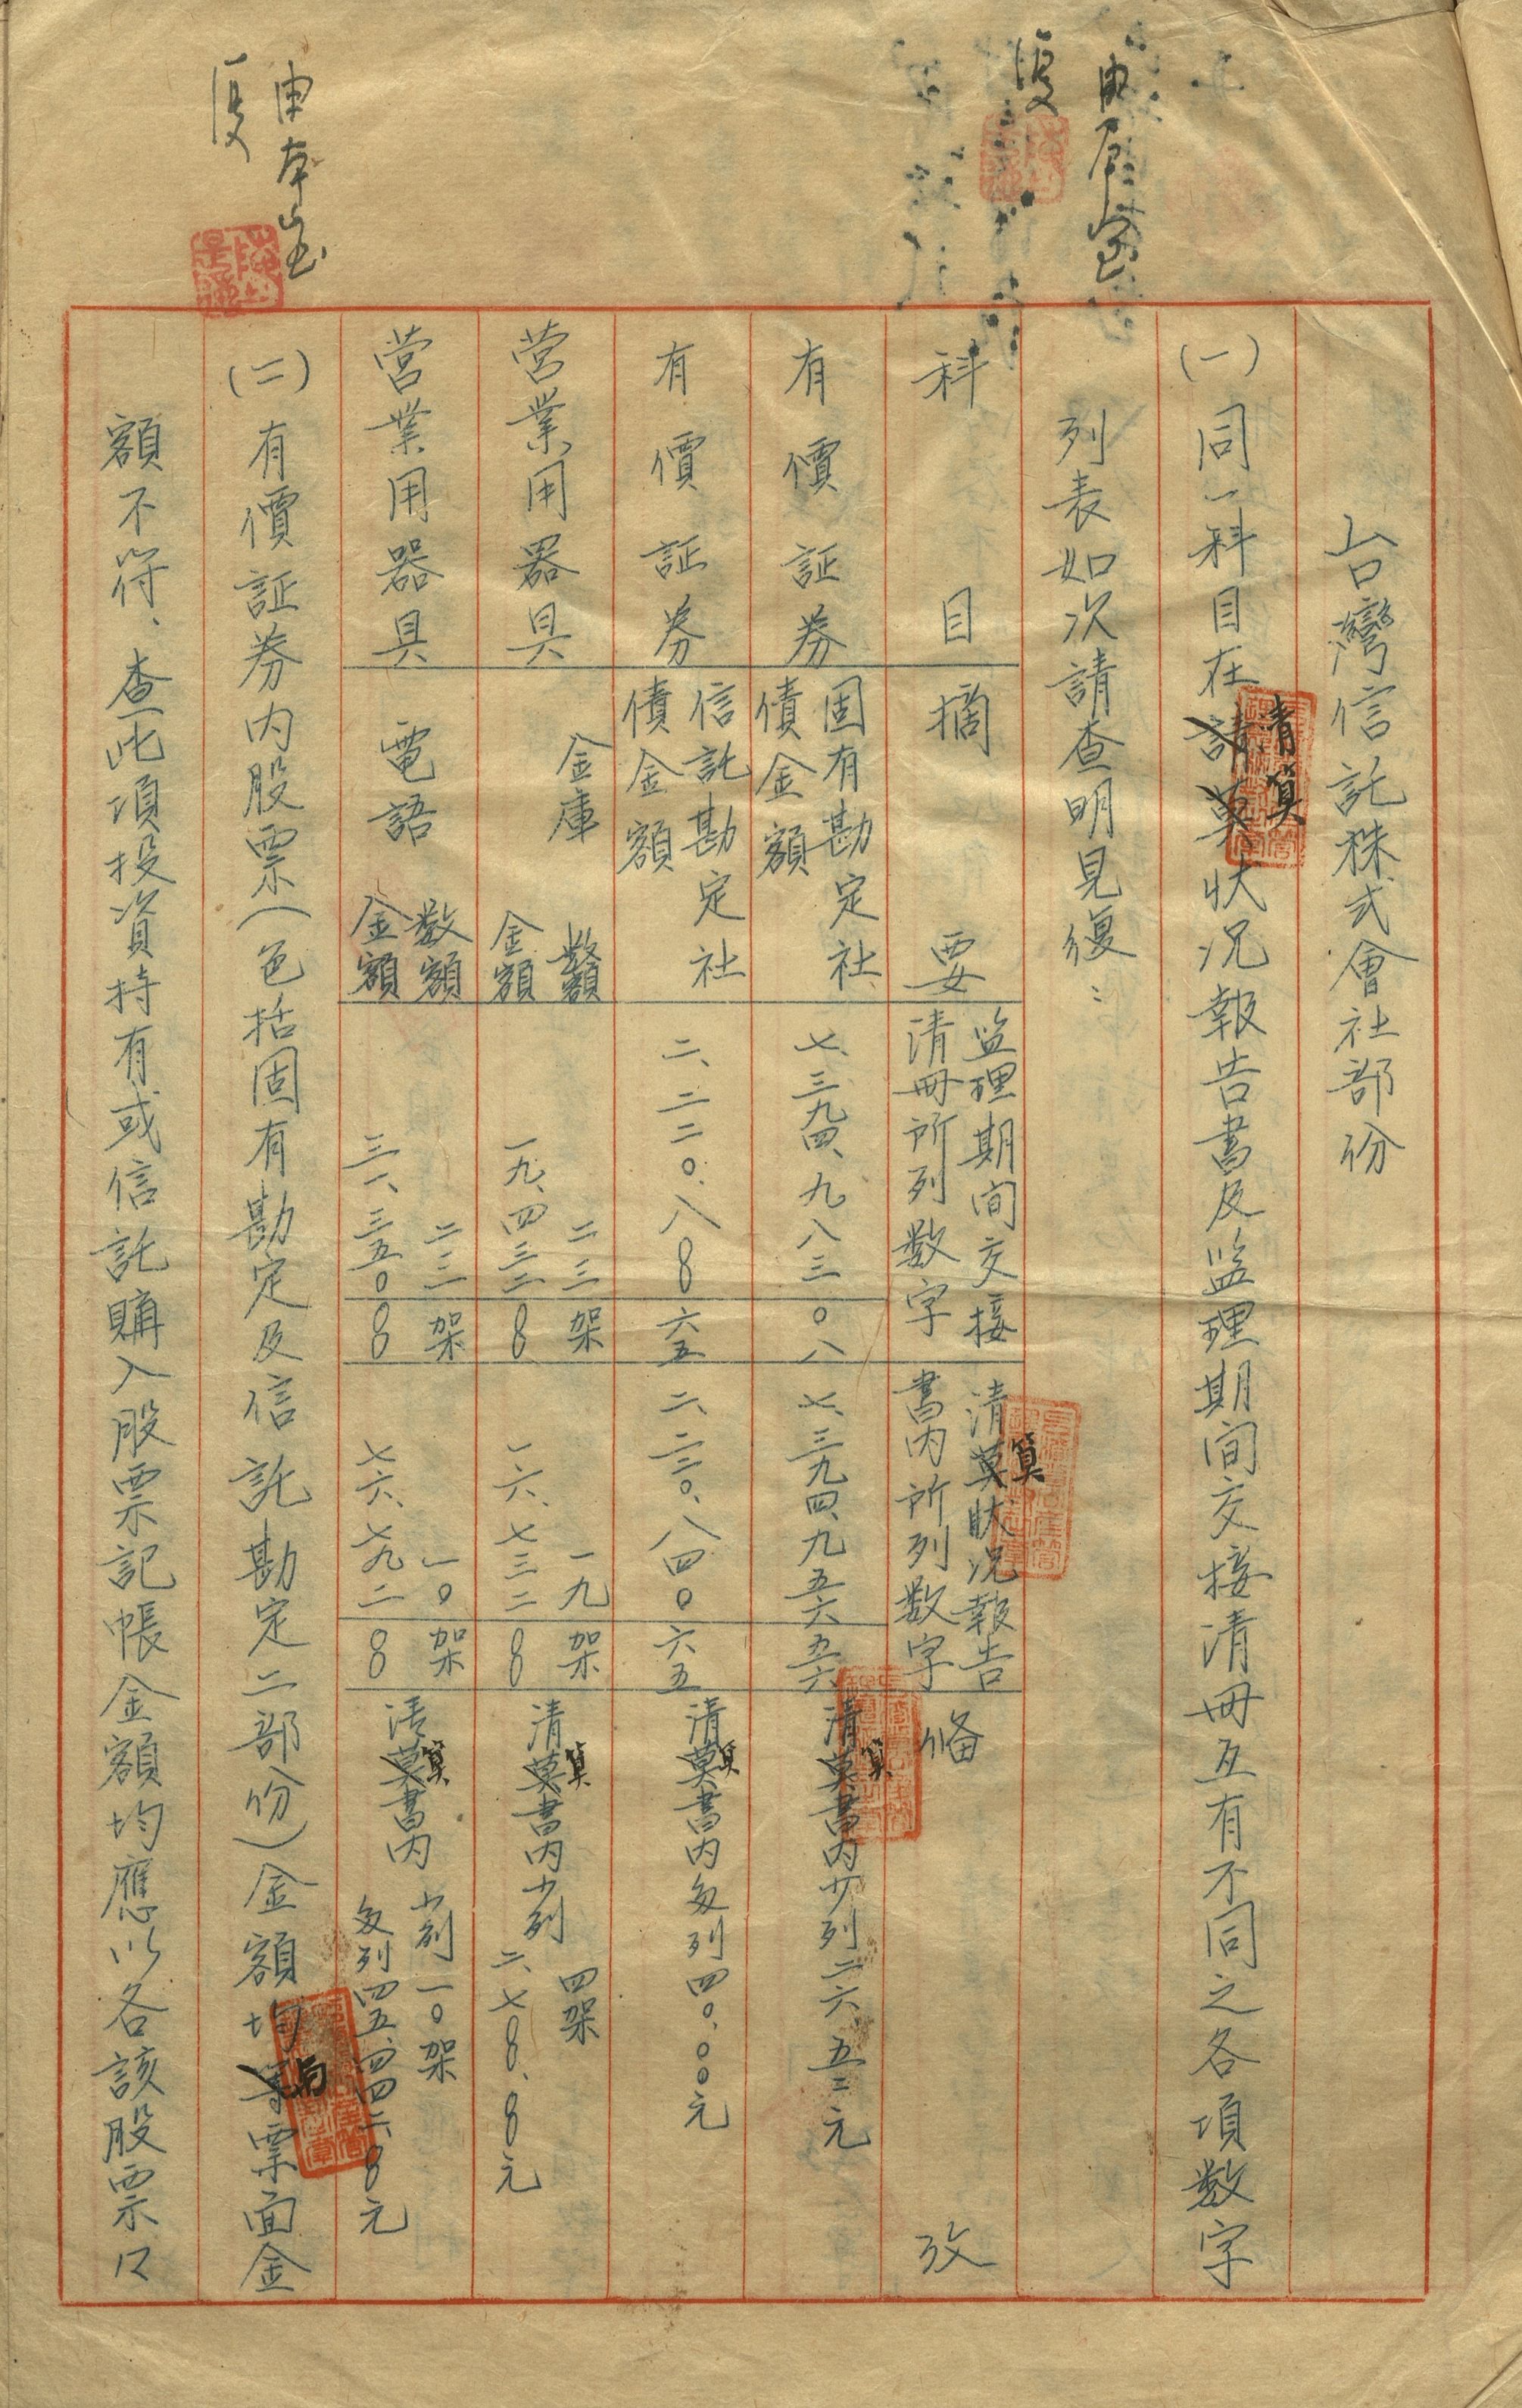 台灣信託株式會社部份
(一)同一科目在清算狀況報告書及监理期间交接清冊互有不同之各項数字
列表如次請查明見復：
科目 摘要 监理期间交接清冊所列数字 清算狀况報告書内所列数字 俻攷
有價証券 固有勘定社債金額 七、三九四、九八三〇八 七、三九四、九五六五六 清算書内少列二六.五二元
有價証券 信託勘定社債金額 二、二二〇.八〇〇六五 二、二二〇、八四〇六五 清算書内多列四〇.〇〇元
营業用器具 金庫 数額 二三架 一九架 四架
金額 一九、四三二00 一六、七三二00 清算書内少列二、七00.00元
营業用器具 電話 数額 二二架 一〇架 少列一〇架
金額 三一、三五〇00 七六、七九二00 清算書内多列四五、四四二.00元
(二)有價証券内股票(包括固有勘定及信託勘定二部份)金額均与票面金
額不符、查此項投資持有或信託購入股票記帳金額均應以各該股票口
由
復
由本室
復